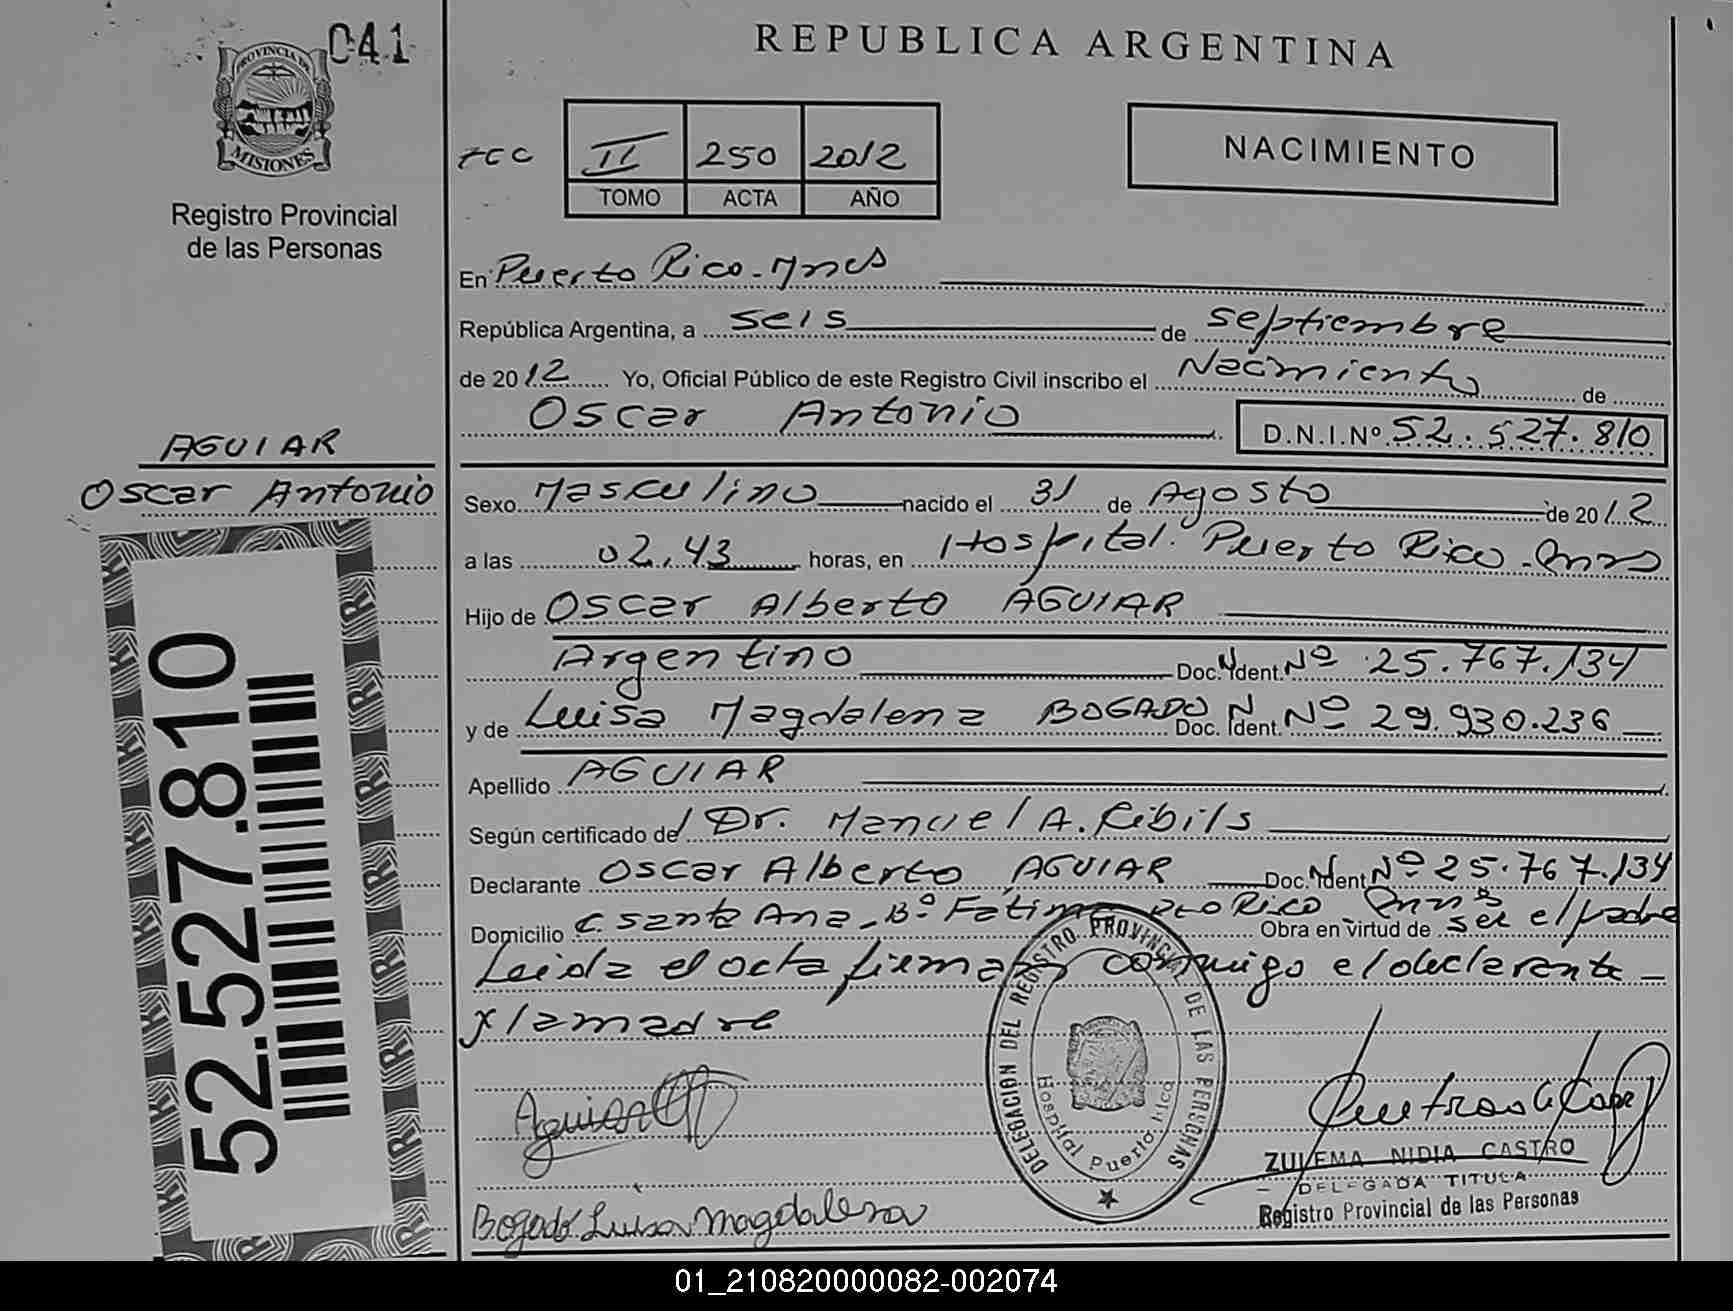 041
PROVINCIA DE
MISIONES
Registro Provincial
de las Personas
REPUBLICA ARGENTINA
II 250 2012
TOMO ACTA AÑO
NACIMIENTO
En Puerto Rico - Mnes
República Argentina, a seis de septiembre
de 2012 Yo, Oficial Público de este Registro Civil inscribo el Nacimiento de
Oscar Antonio D.N.I.Nº 52.527.810
AGUIAR
Oscar Antonio
Sexo Masculino nacido el 31 de Agosto de 2012
a las 02,43 horas, en Hospital. Puerto Rico - Mnes
Hijo de Oscar Alberto AGUIAR
Argentino Doc. N Ident. Nº 25.767.134
y de Luisa Magdalena BOGADO Doc. N Ident. Nº 29.930.236
Apellido AGUIAR
Según certificado del Dr. Manuel A. Ribils
Declarante Oscar Alberto AGUIAR Doc. N Ident Nº 25.767.134
Domicilio C. santa Ana - Bº Fatima Pto Rico Mnes Obra en virtud de ser el padre
Leida el acta firman conmigo el declarante -
y la madre
52.527.810
Aguiar
Bogado Luisa Magdalena
DELEGACION DEL REGISTRO PROVINCIAL DE LAS PERSONAS
Hospital Puerto Rico
ZULEMA NIDIA CASTRO
DELEGADA TITULA
Registro Provincial de las Personas
01_210820000082-002074